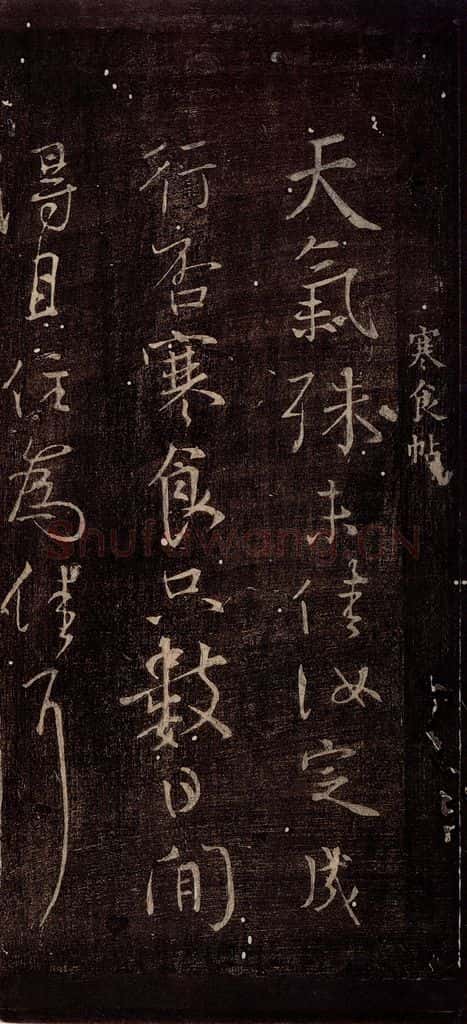 寒食帖
天氣殊未佳汝定成
行否寒食只數日間
得且住為佳耳
Shufawang.CN